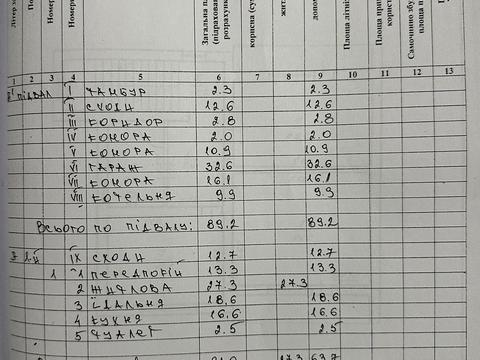 Літер
По
Номер
Номер
Загальна пл
(підрахован
розрахунк
корисна (су
жит
допо
Площа літні
Площа при
корист
Самочинно збу
площа п
1 2 3 4 5 6 7 8 9 10 11 12 13
підвал I тамбур 2.3 2.3
II сходи 12.6 12.6
III коридор 2.8 2.8
IV комора 2.0 2.0
V комора 10.9 10.9
VI гараж 32.6 32.6
VII комора 16.1 16.1
VIII котельня 9.9 9.9
Всього по підвалу: 89.2 89.2
1-й IX сходи 12.7 12.7
1 1 передпокій 13.3 13.3
2 житлова 27.3 27.3
3 їдальня 18.6 18.6
4 кухня 16.6 16.6
5 туалет 2.5 2.5
27.3 63.7